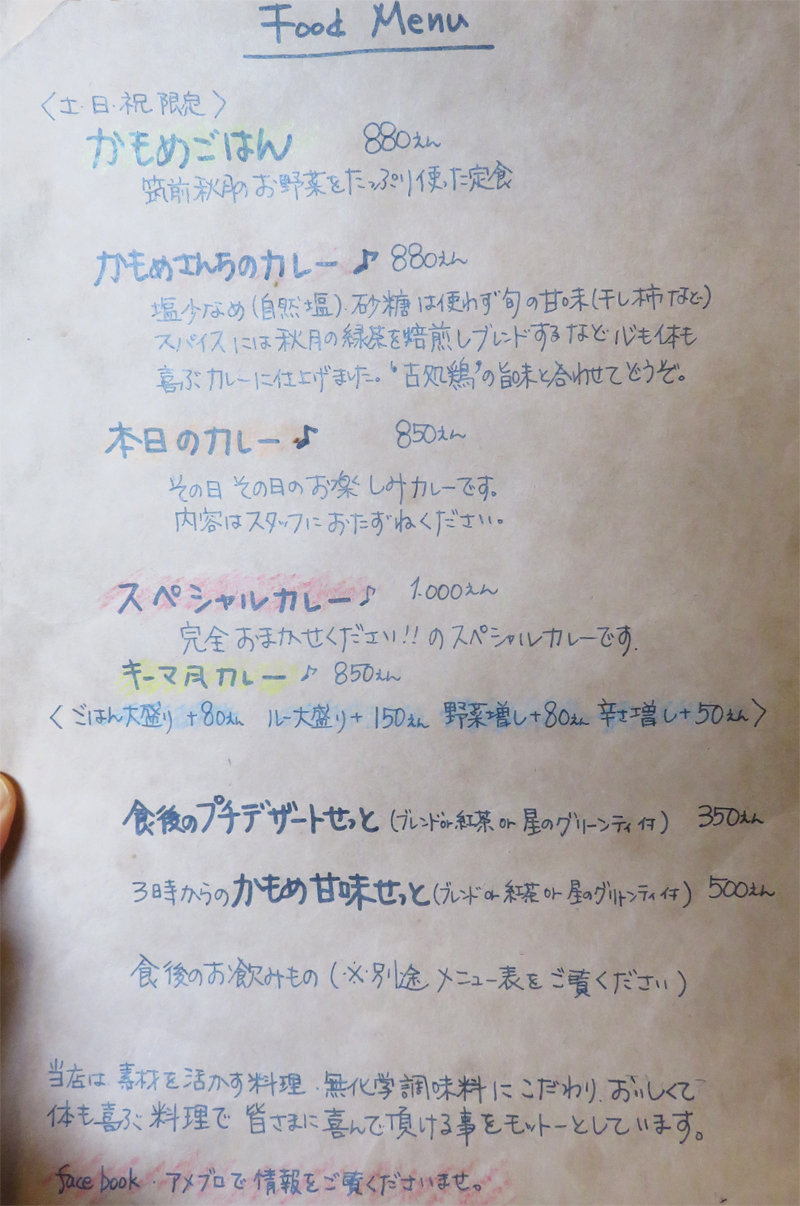 Food Menu
〈土・日・祝 限定〉
かもめごはん 880えん
筑前秋月のお野菜をたっぷり使った定食
かもめさんちのカレー♪ 880えん
塩少なめ(自然塩)・砂糖は使わず旬の甘味(干し柿など)
スパイスには秋月の緑茶を焙煎しブレンドするなど心も体も
喜ぶカレーに仕上げました。“古処鶏”の旨味と合わせてどうぞ。
本日のカレー♪ 850えん
その日その日のお楽しみカレーです。
内容はスタッフにおたずねください。
スペシャルカレー♪ 1.000えん
完全おまかせください!!のスペシャルカレーです.
キーマ月カレー♪ 850えん
〈ごはん大盛り+80えん ルー大盛り+150えん 野菜増し+80えん 辛さ増し+50えん〉
食後のプチデザートせっと(ブレンドor紅茶or星のグリーンティ付) 350えん
3時からのかもめ甘味せっと(ブレンドor紅茶or星のグリーンティ付) 500えん
食後のお飲みもの(※別途メニュー表をご覧ください)
当店は素材を活かす料理・無化学調味料にこだわり、おいしくて
体も喜ぶ料理で皆さまに喜んで頂ける事をモットーとしています。
facebook・アメブロで情報をご覧くださいませ。